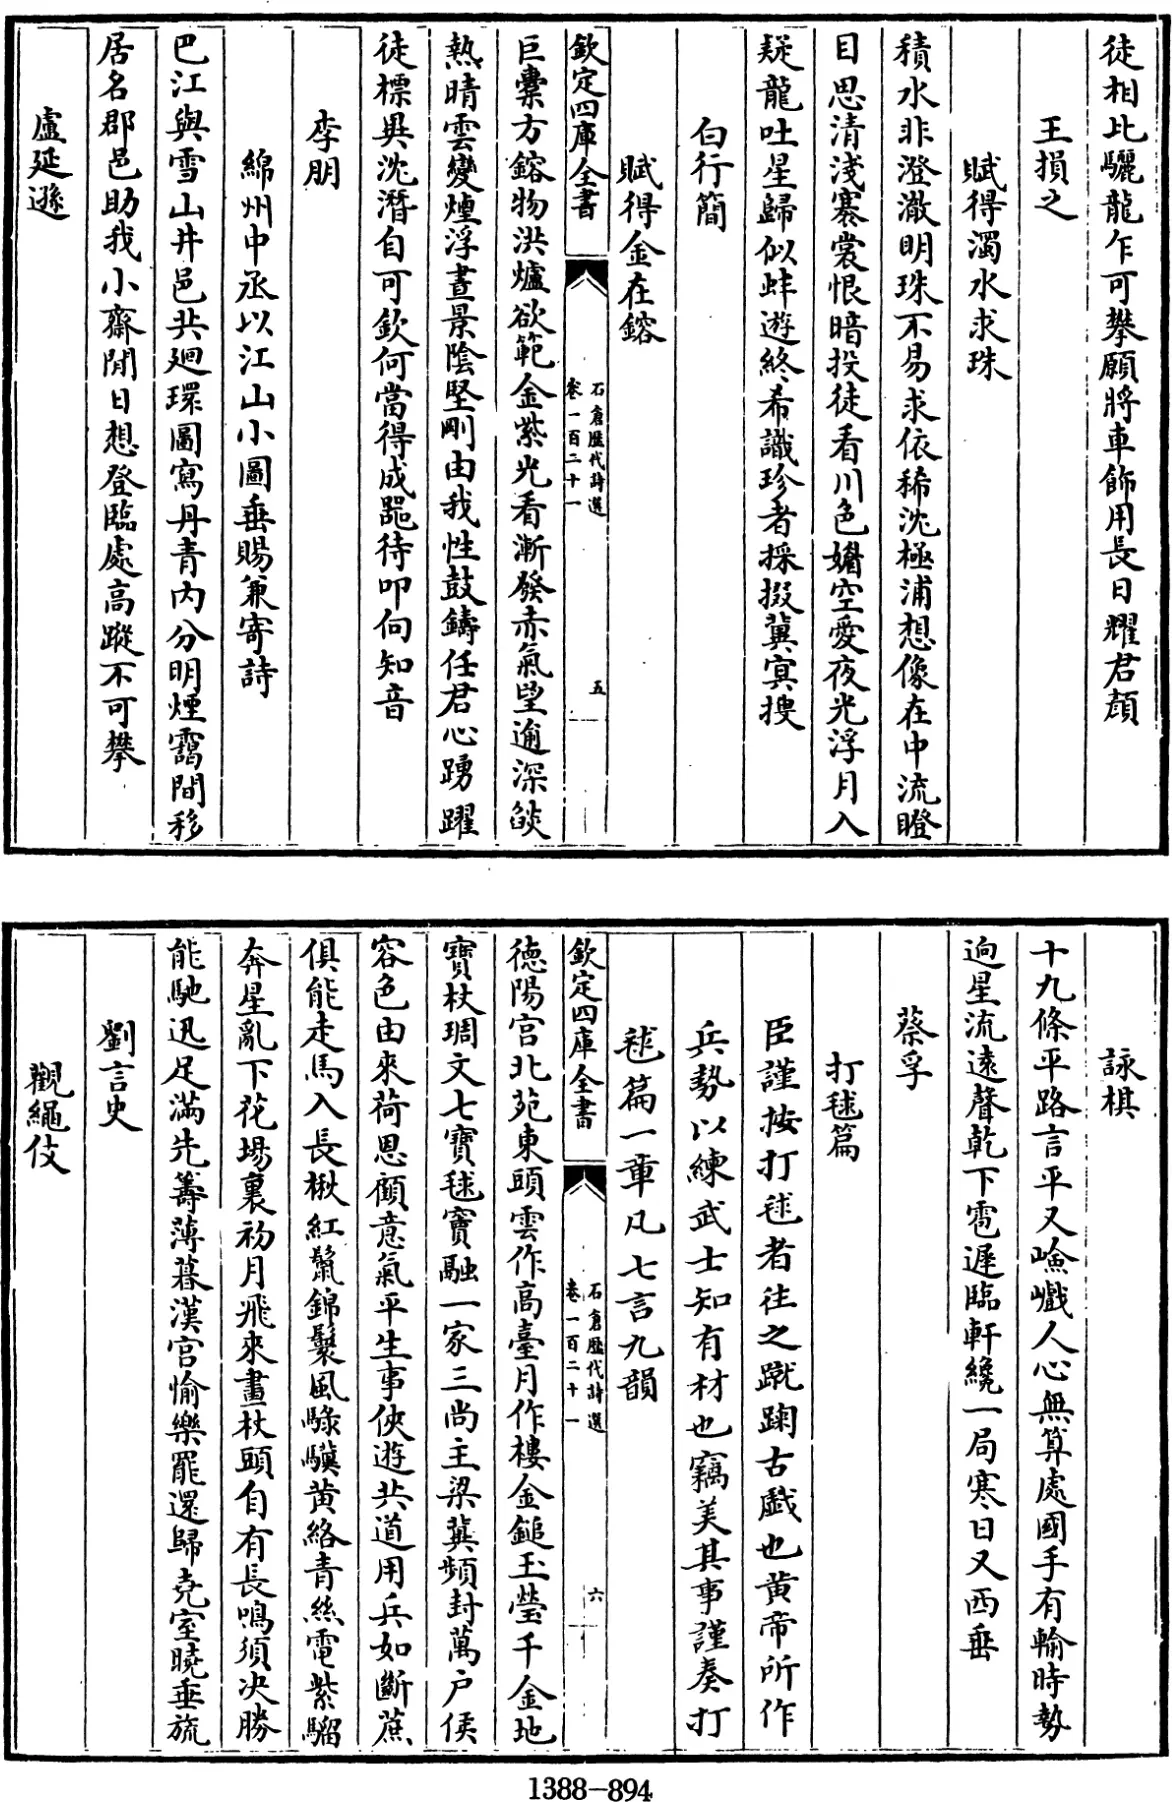 徒相比驪龍乍可攀願將車飾用長日耀君顔
王損之
賦得濁水求珠
積水非澄澈明珠不易求依稀沈極浦想像在中流瞪
目思清淺褰裳恨暗投徒看川色媚空愛夜光浮月入
疑龍吐星歸似蚌遊終希識珍者採掇冀㝠搜
白行簡
賦得金在鎔
欽定四庫全書
石倉歷代詩選
卷一百二十一
五
巨橐方鎔物洪爐欲範金紫光看漸發赤氣望逾深燄
熱晴雲變煙浮晝景陰堅剛由我性鼓鑄任君心踴躍
徒標異沈潛自可欽何當得成器待叩向知音
李朋
綿州中丞以江山小圖垂賜兼寄詩
巴江與雪山井邑共廻環圖寫丹青内分明煙靄間移
居名郡邑助我小齋閒日想登臨處高蹤不可攀
盧延遜
詠棋
十九條平路言平又嶮巇人心無算處國手有輸時勢
逈星流遠聲乾下雹遲臨軒纔一局寒日又西垂
蔡孚
打毬篇
臣謹按打毬者徃之蹴踘古戯也黄帝所作
兵勢以練武士知有材也竊美其事謹奏打
毬篇一章凡七言九韻
欽定四庫全書
石倉歷代詩選
卷一百二十一
六
德陽宫北苑東頭雲作高臺月作樓金鎚玉瑩千金地
寶杖琱文七寶毬竇融一家三尚主梁冀頻封萬户侯
容色由來荷恩顧意氣平生事俠遊共道用兵如斷蔗
俱能走馬入長楸紅鬛錦鬟風騄驥黄絡青絲電紫騮
奔星亂下花場裏初月飛來畫杖頭自有長鳴須决勝
能馳迅足滿先籌薄暮漢宫愉樂罷還歸尭室曉垂旒
劉言史
觀繩伎
1388-894